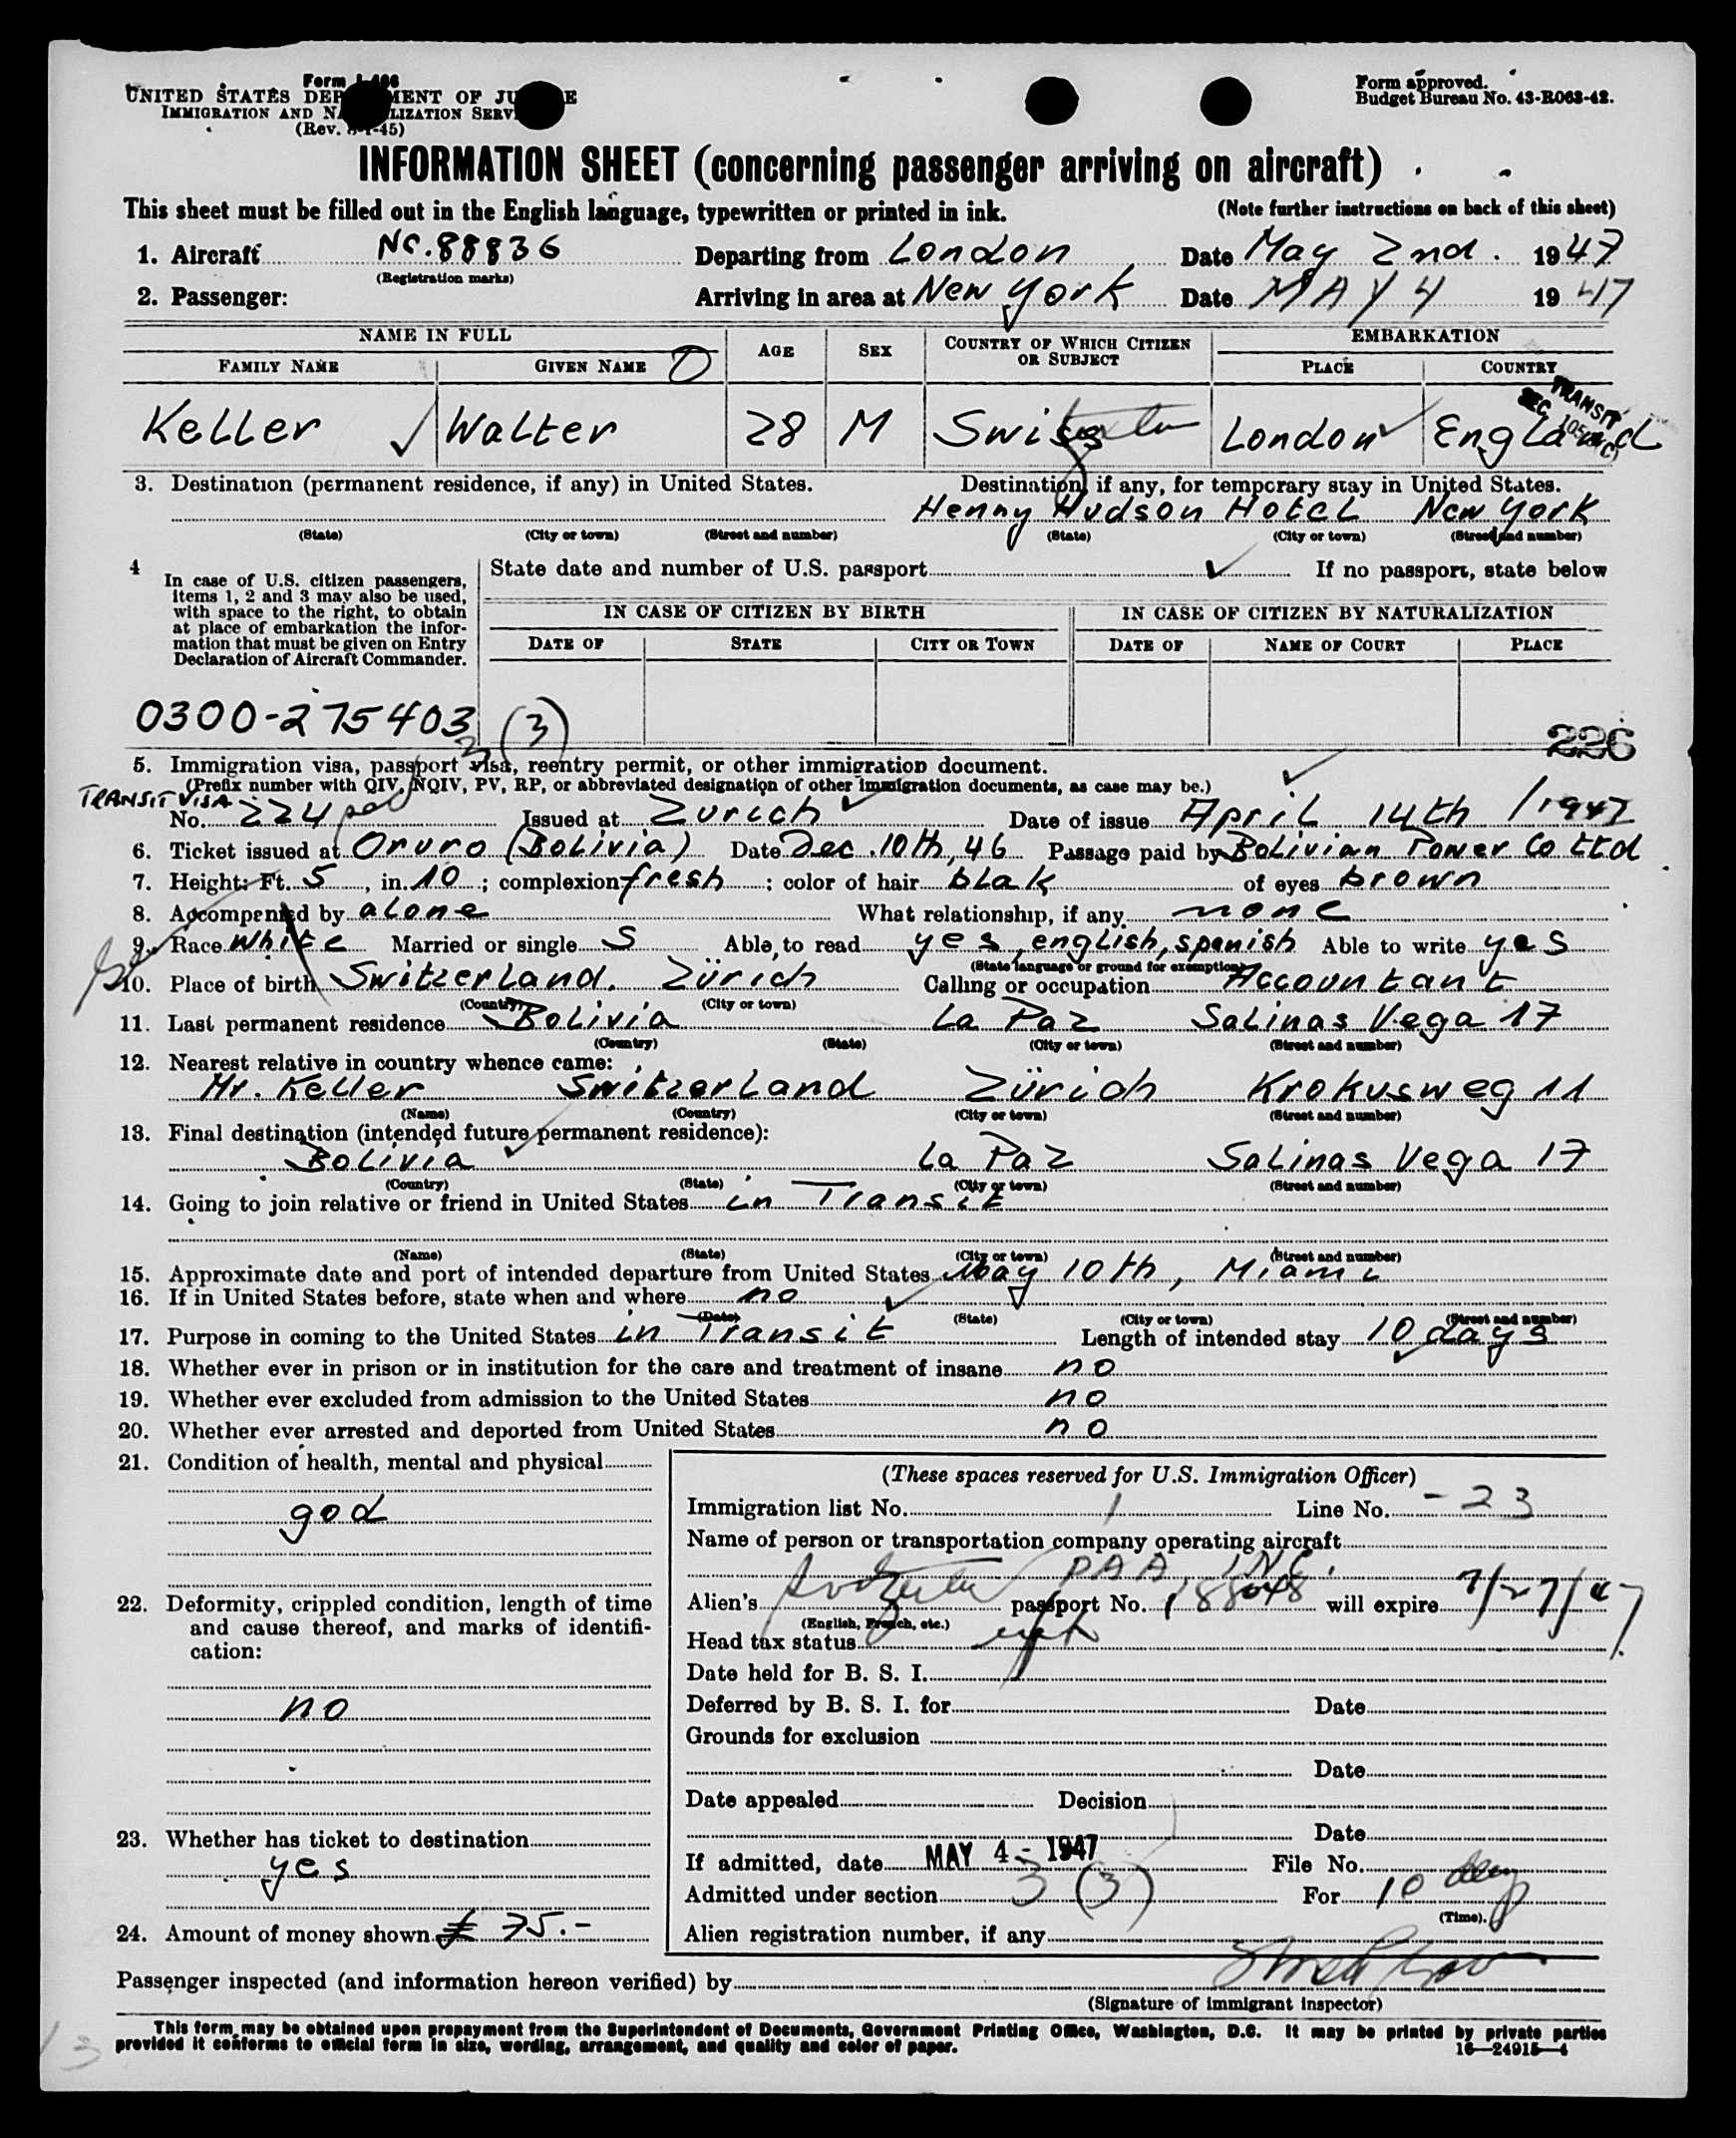 Form I-466
UNITED STATES DEPARTMENT OF JUSTICE
IMMIGRATION AND NATURALIZATION SERVICE
(Rev. -45)
Form approved.
Budget Bureau No. 43-R063-42.
INFORMATION SHEET (concerning passenger arriving on aircraft)
This sheet must be filled out in the English language, typewritten or printed in ink. (Note further instructions on back of this sheet)
1. Aircraft NC.88836 Departing from London Date May 2nd. 1947
(Registration marks)
2. Passenger: Arriving in area at New York Date MAY 4 1947
NAME IN FULL AGE SEX COUNTRY OF WHICH CITIZEN OR SUBJECT EMBARKATION
FAMILY NAME GIVEN NAME PLACE COUNTRY
TRANSIT
Keller Walter 28 M Swiss London England
3. Destination (permanent residence, if any) in United States. Destination, if any, for temporary stay in United States.
Henny Hudson Hotel New York
(State) (City or town) (Street and number) (State) (City or town) (Street and number)
4 In case of U.S. citizen passengers, items 1, 2 and 3 may also be used, with space to the right, to obtain at place of embarkation the information that must be given on Entry Declaration of Aircraft Commander.
State date and number of U.S. passport If no passport, state below
IN CASE OF CITIZEN BY BIRTH IN CASE OF CITIZEN BY NATURALIZATION
DATE OF STATE CITY OR TOWN DATE OF NAME OF COURT PLACE
0300-275403 3 (3)
226
5. Immigration visa, passport visa, reentry permit, or other immigration document.
(Prefix number with QIV, NQIV, PV, RP, or abbreviated designation of other immigration documents, as case may be.)
TRANSIT VISA
No. 224 Issued at Zurich Date of issue April 14th / 1947
6. Ticket issued at Oruro (Bolivia) Date Dec. 10th, 46 Passage paid by Bolivian Power Co Ltd
7. Height: Ft. 5, in. 10; complexion fresh; color of hair blak of eyes brown
8. Accompanied by alone What relationship, if any none
9. Race White Married or single S Able to read yes, english, spanish Able to write yes
(State language or ground for exemption)
10. Place of birth Switzerland. Zürich Calling or occupation Accountant
(Country) (City or town)
11. Last permanent residence Bolivia La Paz Salinas Vega 17
(Country) (State) (City or town) (Street and number)
12. Nearest relative in country whence came:
Mr. Keller Switzerland Zürich Krokusweg 11
(Name) (Country) (City or town) (Street and number)
13. Final destination (intended future permanent residence):
Bolivia La Paz Salinas Vega 17
(Country) (State) (City or town) (Street and number)
14. Going to join relative or friend in United States in Transit
(Name) (State) (City or town) (Street and number)
15. Approximate date and port of intended departure from United States May 10th, Miami
16. If in United States before, state when and where no
(Date) (State) (City or town) (Street and number)
17. Purpose in coming to the United States in Transit Length of intended stay 10 days
18. Whether ever in prison or in institution for the care and treatment of insane no
19. Whether ever excluded from admission to the United States no
20. Whether ever arrested and deported from United States no
21. Condition of health, mental and physical
god
22. Deformity, crippled condition, length of time
and cause thereof, and marks of identifi-
cation:
no
23. Whether has ticket to destination
yes
24. Amount of money shown £ 75.-
(These spaces reserved for U.S. Immigration Officer)
Immigration list No. 1 Line No. -23
Name of person or transportation company operating aircraft
PAA, INC.
Alien's passport No. 18848 will expire 7/27/47
(English, French, etc.)
Head tax status
Date held for B. S. I.
Deferred by B. S. I. for Date
Grounds for exclusion
Date
Date appealed Decision
Date
If admitted, date MAY 4 - 1947 File No.
Admitted under section 3 (3) For 10 days
(Time).
Alien registration number, if any
Passenger inspected (and information hereon verified) by
(Signature of immigrant inspector)
This form may be obtained upon prepayment from the Superintendent of Documents, Government Printing Office, Washington, D.C. It may be printed by private parties
provided it conforms to official form in size, wording, arrangement, and quality and color of paper. 16—24915-4
13